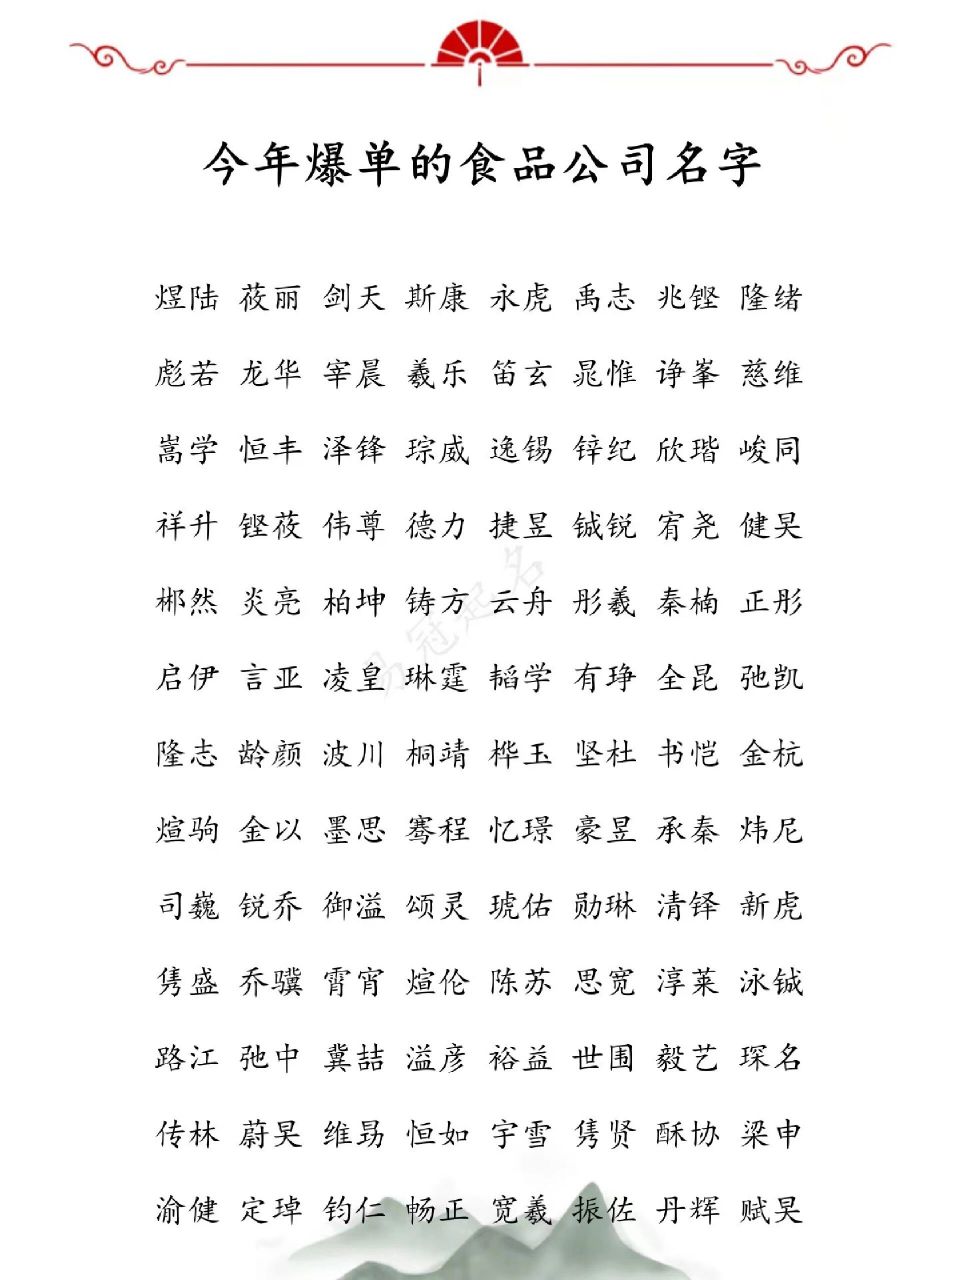 今年爆单的食品公司名字
煜陆 莜丽 剑天 斯康 永虎 禹志 兆铿 隆绪
彪若 龙华 宰晨 羲乐 笛玄 晁惟 诤峯 慈维
嵩学 恒丰 泽锋 琮威 逸锡 锌纪 欣瑎 峻同
祥升 铿莜 伟尊 德力 捷昱 铖锐 宥尧 健昊
郴然 炎亮 柏坤 铸方 云舟 彤羲 秦楠 正彤
启伊 言亚 凌皇 琳霆 韬学 有琤 全昆 弛凯
隆志 龄颜 波川 桐靖 桦玉 坚杜 书恺 金杭
煊驹 金以 墨思 骞程 忆璟 豪昱 承秦 炜尼
司巍 锐乔 御溢 颂灵 琥佑 勋琳 清铎 新虎
隽盛 乔骥 霄宵 煊伦 陈苏 思宽 淳莱 泳铖
路江 弛中 冀喆 溢彦 裕益 世围 毅艺 琛名
传林 蔚昊 维勗 恒如 宇雪 隽贤 酥协 梁申
渝健 定琸 钧仁 畅正 宽羲 振佐 丹辉 赋昊
易冠起名